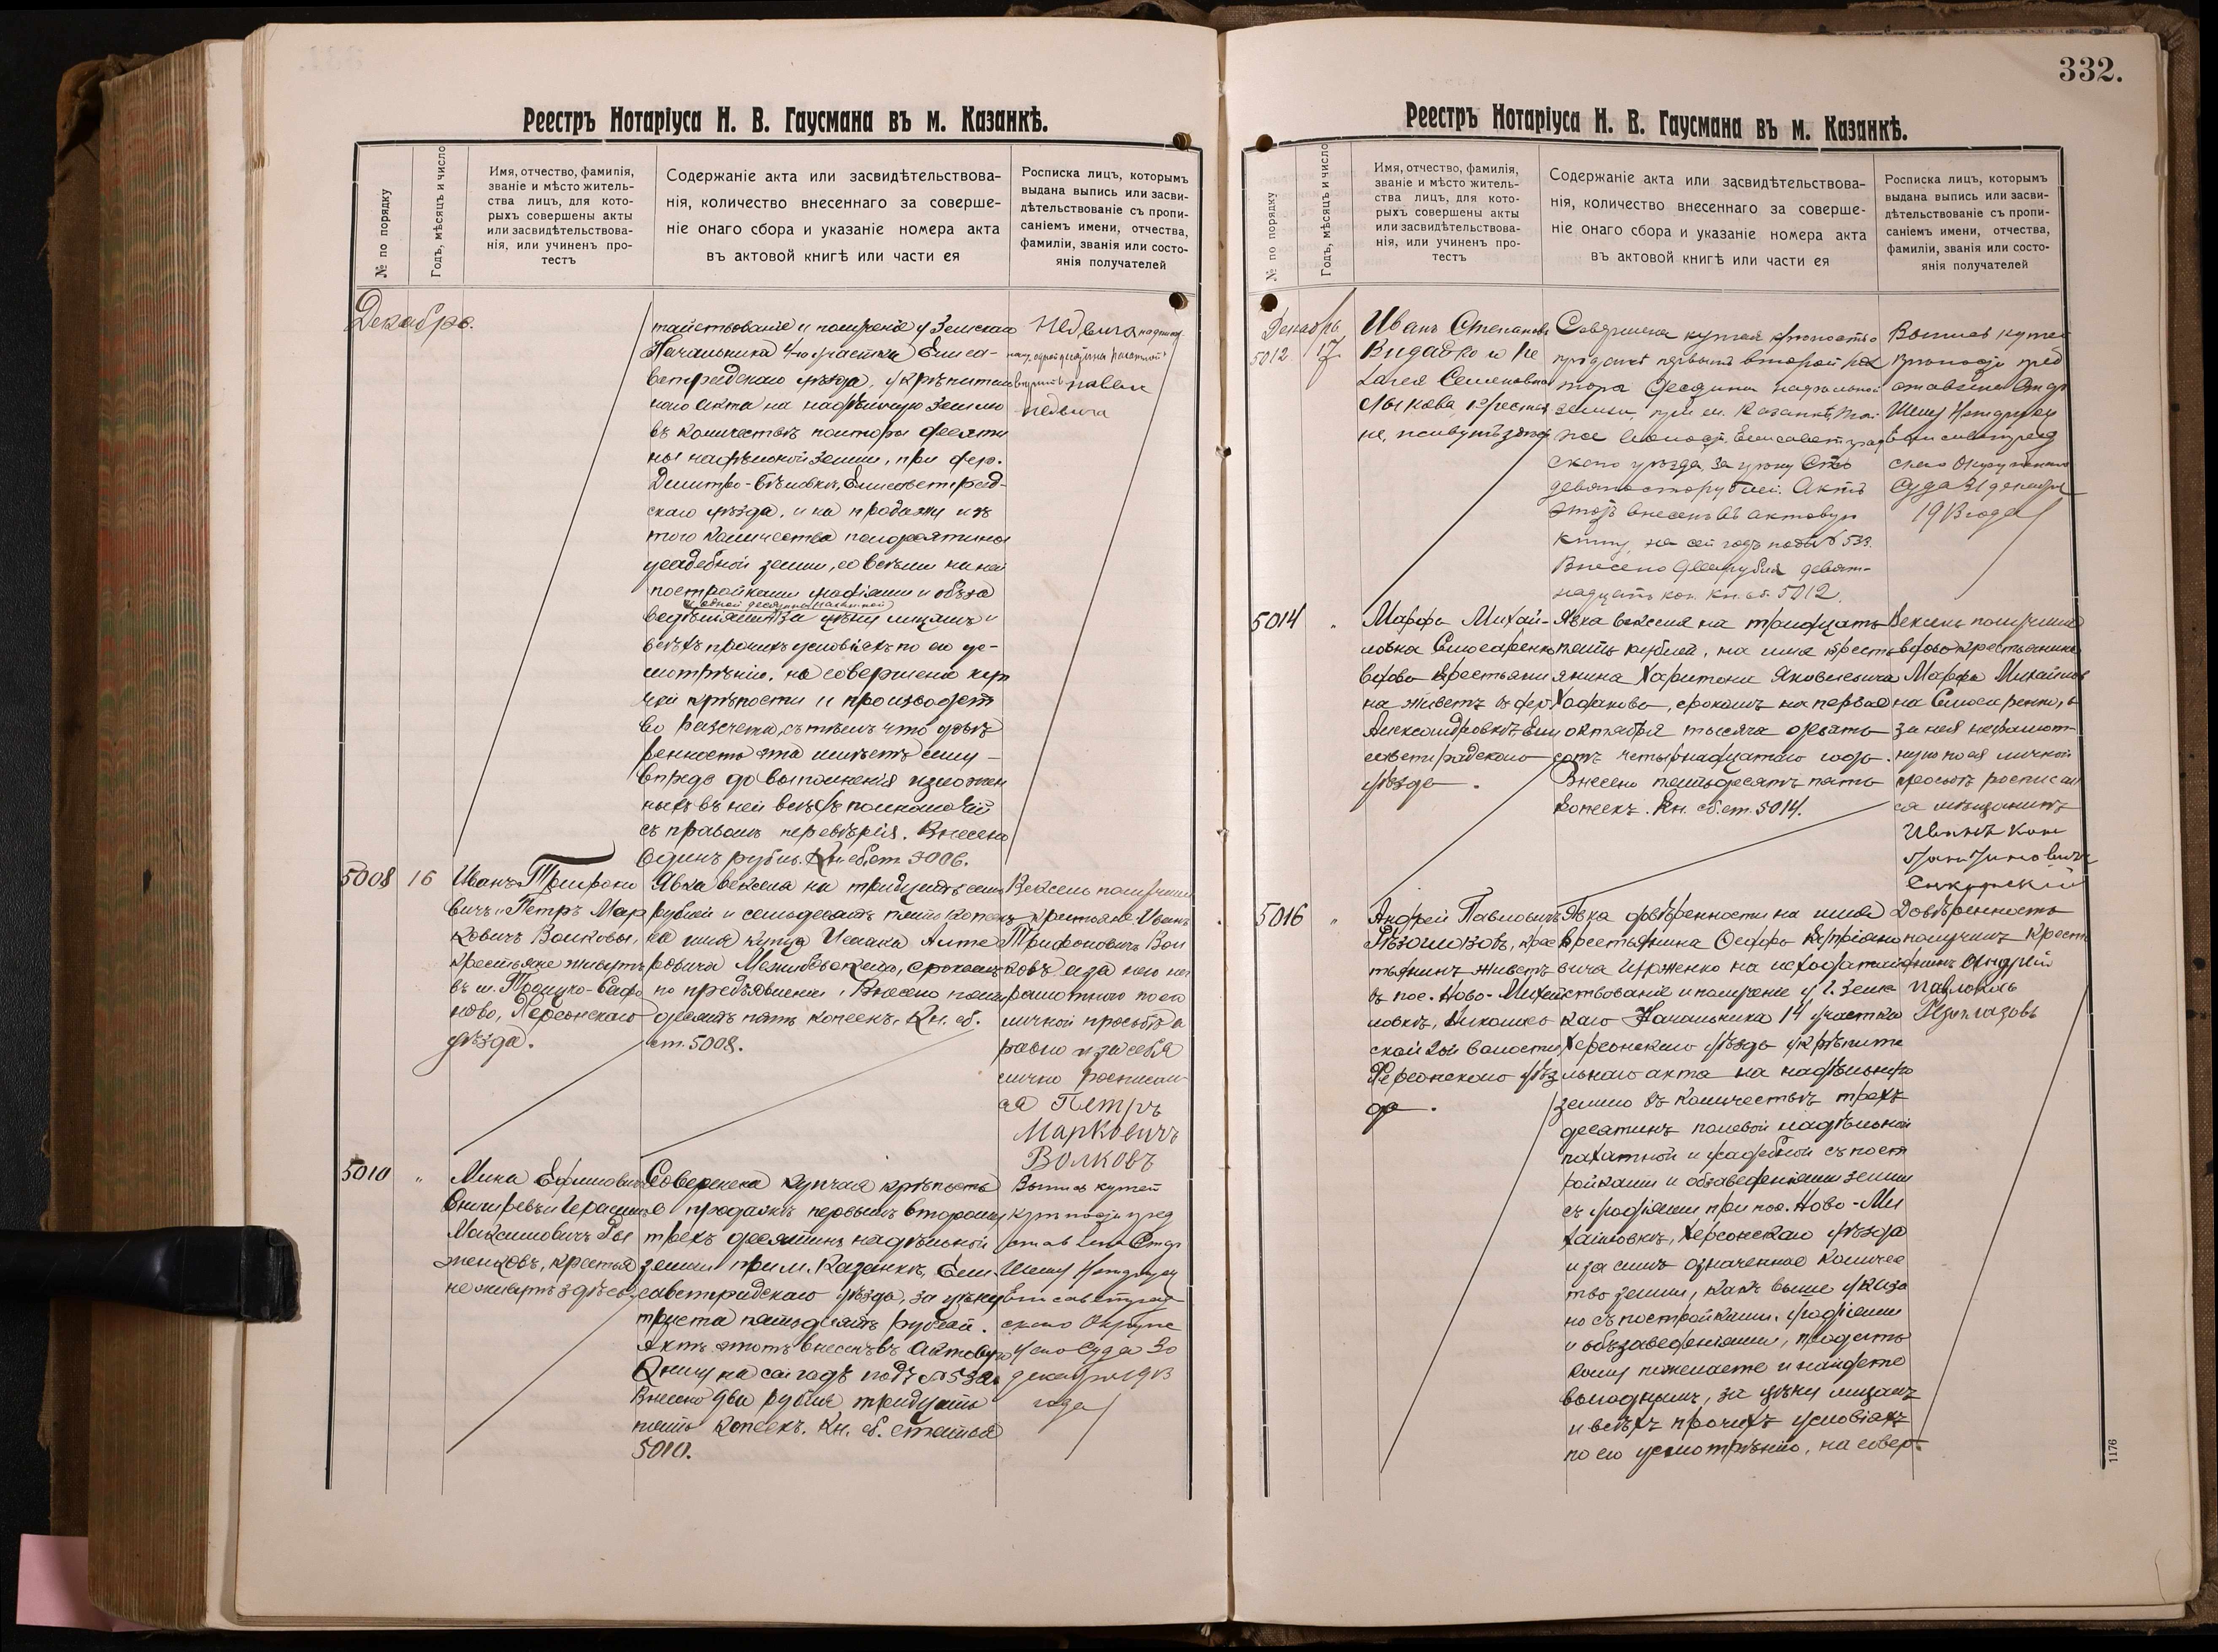 332.
Реестръ Нотаріуса Н. В. Гаусмана въ м. Казанкѣ.
№ по порядку
Годъ, мѣсяцъ и число
Имя, отчество, фамилія,
званіе и мѣсто житель-
ства лицъ, для кото-
рыхъ совершены акты
или засвидѣтельствова-
нія, или учиненъ про-
тестъ
Содержаніе акта или засвидѣтельствова-
нія, количество внесеннаго за соверше-
ніе онаго сбора и указаніе номера акта
въ актовой книгѣ или части ея
Росписка лицъ, которымъ
выдана выпись или засви-
дѣтельствованіе съ пропи-
саніемъ имени, отчества,
фамиліи, званія или состо-
янія получателей
Декабрь.
тайствованіе и полученіе у Земскаго
Начальника 4-го участка Елиса-
ветградскаго уѣзда, укрѣпитель
наго акта на надѣльную землю
въ количествѣ полторы десяти
ны надѣльной земли, при дер.
Дмитро-Бѣловкѣ, Елисаветград-
скаго уѣзда, и на продажу изъ
того количества полдесятины
усадебной земли, со всѣми на ней
постройками угодіями и обза
и одной десятины пахатной
веденіями за цѣну лицамъ и
всѣхъ прочихъ условіяхъ по его ус-
мотрѣнію, на совершеніе куп
чей крѣпости и производст
во разсчета, съ тѣмъ что довѣ
ренность эта имѣетъ силу
впредь до выполненія изложен
ныхъ въ ней всѣхъ полномочій
съ правомъ передовѣрія. Внесено
Одинъ рубль. Кн. сб. ст. 5006.
5008 16
Иванъ Трифоно
вичъ и Петръ Мар
ковичъ Волковы,
крестьяне живутъ
въ м. Троицко-Сафо
ново, Херсонскаго
уѣзда.
Явка векселя на тридцать семь
рублей и семьдесятъ пять копѣекъ
на имя купца Исаака Алте
ровича Межибовскаго, срокомъ
по предъявленіи. Внесено пять
десятъ пять копеекъ. Кн. сб.
ст. 5008.
Вексель получили
крестьяне Иванъ
Трифоновичъ Вол
ковъ, а за него не
грамотнаго по его
личной просьбѣ а
равно и за себя
лично росписал
ся Петръ
Марковичъ
Волковъ
5010 "
Мина Ефимович
Онисифевъ и Герасим
Максимовичъ Ры
женковъ, крестья
не живутъ здѣсь.
Совершена купчая крѣпость
о продажѣ первымъ второму
трехъ десятинъ надѣльной
земли при м. Казанкѣ, Ели-
саветградскаго уѣзда, за цѣну
триста пятьдесятъ рублей.
Актъ этотъ внесенъ въ актовую
книгу на сей годъ подъ № 532.
Внесено два рубля тридцать
пять копеекъ. Кн. сб. статья
5010.
Выпись купчей
крѣпости пред
ставлена Стар
шему Нотаріусу
Елисаветград
скаго Окруж
наго Суда 30
декабря 1913
года
Реестръ Нотаріуса Н. В. Гаусмана въ м. Казанкѣ.
№ по порядку
Годъ, мѣсяцъ и число
Имя, отчество, фамилія,
званіе и мѣсто житель-
ства лицъ, для кото-
рыхъ совершены акты
или засвидѣтельствова-
нія, или учиненъ про-
тестъ
Содержаніе акта или засвидѣтельствова-
нія, количество внесеннаго за соверше-
ніе онаго сбора и указаніе номера акта
въ актовой книгѣ или части ея
Росписка лицъ, которымъ
выдана выпись или засви-
дѣтельствованіе съ пропи-
саніемъ имени, отчества,
фамиліи, званія или состо-
янія получателей
Декабрь
5012 17
Иванъ Степановъ
Семеновна
Лыкова, крестья
не, живутъ здѣсь
Совершена купчая крѣпость о
продажѣ первымъ второй пол
тора десятины надѣльной
земли, при м. Казанкѣ, той
же волости, Елисаветград
скаго уѣзда, за цѣну сто
девяносто рублей. Актъ
этотъ внесенъ въ актовую
книгу на сей годъ подъ № 533.
Внесено два рубля девят-
надцать коп. Кн. сб. 5012.
Выпись купчей
крѣпости пред
ставлена Стар
шему Нотаріусу
Елисаветград
скаго Окружнаго
Суда 31 декабря
1913 года
5014 "
Марфа Михай-
ловна Слюсаренко
вдова крестьяни
на живетъ въ дер.
Александровкѣ Ели
саветградскаго
уѣзда.
Явка векселя на тридцать
пять рублей, на имя кресть
янина Харитона Яковлевича
Ходаково, срокомъ на первое
октября тысяча девять
сотъ четырнадцатаго года.
Внесено пятьдесятъ пять
копеекъ. Кн. сб. ст. 5014.
Вексель получила
вдова крестьянина
Марфа Михайлов
на Слюсаренко, а
за нея неграмот
ную по ея личной
просьбѣ росписал
ся мѣщанинъ
Иванъ Кон
стантиновичъ
5016 "
Андрей Павловичъ
крес
тьянинъ живетъ
въ пос. Ново-Михай
ловкѣ, Николаев
ской 2ой волости
Херсонскаго уѣз
да.
Явка довѣренности на имя
крестьянина Осифа Кипріано
вича Ирженко на исходатай
ствованіе и полученіе у г. Земс
каго Начальника 14 участка
Херсонскаго уѣзда укрѣпите
льнаго акта на надѣльную
землю въ количествѣ трехъ
десятинъ полевой надѣльной
пахатной и усадебной съ пост
ройками и обзаведеніями земли
съ угодіями при пос. Ново-Ми
хайловкѣ, Херсонскаго уѣзда
и за симъ означенное количес
тво земли, какъ выше указа
но съ постройками, угодіями
и обзаведеніями, продать
кому пожелаете и найдете
выгоднымъ, за цѣну лицамъ
и всѣхъ прочихъ условіяхъ
по его усмотрѣнію, на совер-
Довѣренность
получилъ крест
янинъ Андрей
Павловичъ
1176